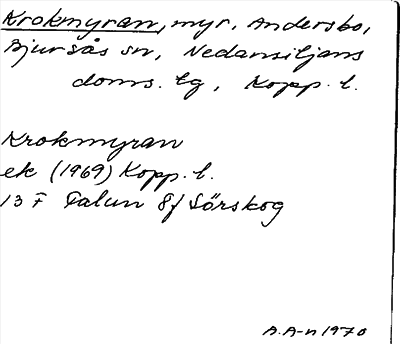 Krokmyran, myr, Andersbo,
Bjursås sn, Nedansiljans
doms. tg, Kopp. l.
Krokmyran
ek (1969) Kopp. l.
13 F Falun 8f Sörskog
A.A-n 1970